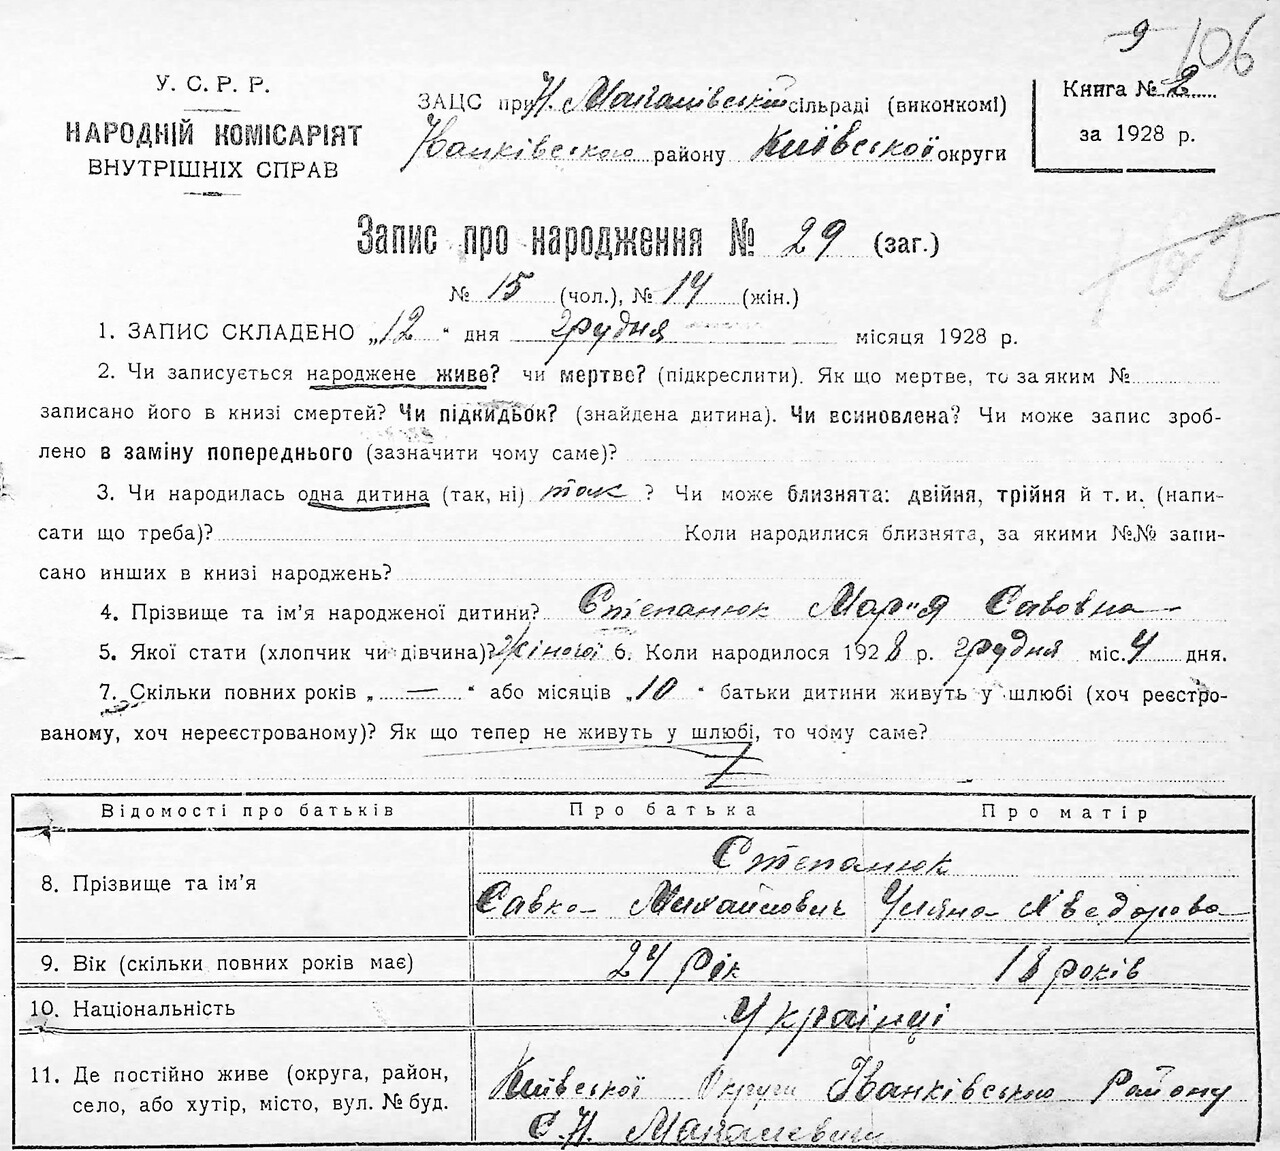 9 106
У. С. Р. Р.
НАРОДНІЙ КОМІСАРІЯТ
ВНУТРІШНІХ СПРАВ
ЗАЦС при Н. Макалівській сільраді (виконкомі)
Іванківського району Київської округи
Книга № 2
за 1928 р.
Запис про народження № 29 (заг.)
№ 15 (чол.), № 14 (жін.)
1. ЗАПИС СКЛАДЕНО „12" дня грудня місяця 1928 р.
2. Чи записується народжене живе? чи мертве? (підкреслити). Як що мертве, то за яким №
записано його в книзі смертей? Чи підкидьок? (знайдена дитина). Чи всиновлена? Чи може запис зроб-
лено в заміну попереднього (зазначити чому саме)?
3. Чи народилась одна дитина (так, ні) так ? Чи може близнята: двійня, трійня й т. и. (напи-
сати що треба)? Коли народилися близнята, за якими №№ запи-
сано инших в книзі народжень?
4. Прізвище та ім'я народженої дитини? Степанюк Марія Савовна
5. Якої стати (хлопчик чи дівчина)? Жіночої 6. Коли народилося 1928 р. грудня міс. 4 дня.
7. Скільки повних років „ — " або місяців „10" батьки дитини живуть у шлюбі (хоч реєстро-
ваному, хоч нереєстрованому)? Як що тепер не живуть у шлюбі, то чому саме?
Відомості про батьків Про батька Про матір
8. Прізвище та ім'я Степанюк
Савка Михайлович Уляна Хведорова
9. Вік (скільки повних років має) 24 рік 18 років
10. Національність Українці
11. Де постійно живе (округа, район, Київської Округи Іванківського Району
село, або хутір, місто, вул. № буд. С. Н. Макалевичи